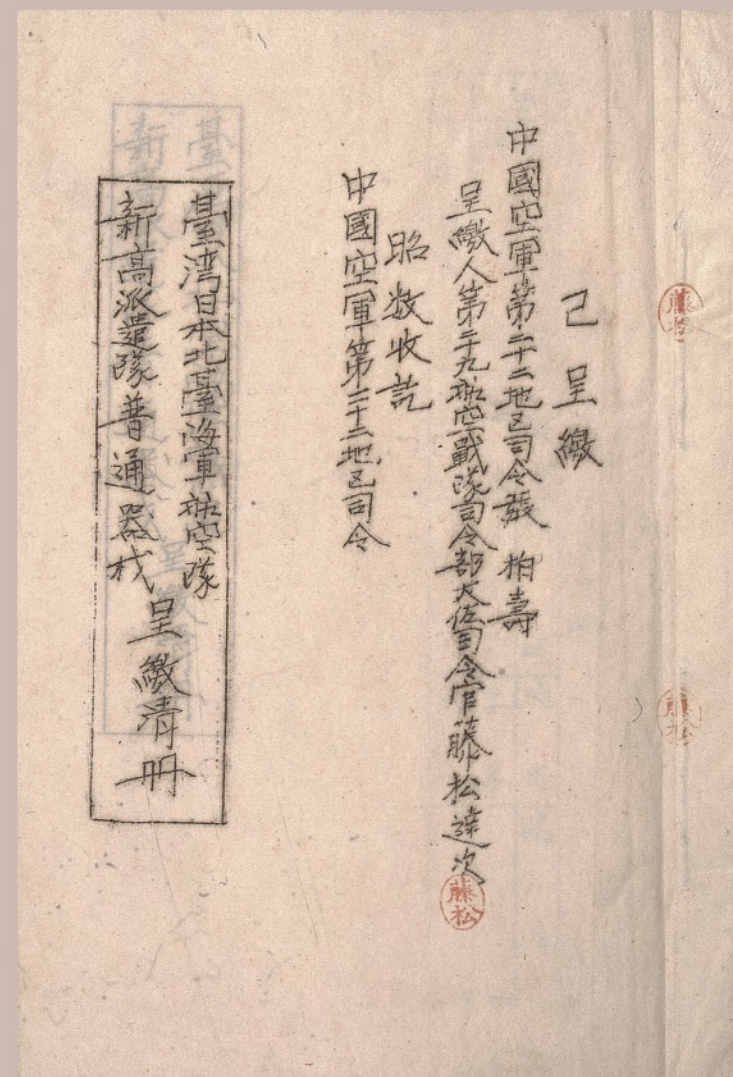 己呈繳
中國空軍第二十二地区司令張柏壽
呈繳人第二十九航空戰隊司令部大佐司令官藤松達次
藤松
昭数收訖
中國空軍第二十二地区司令
臺湾日本北臺海軍航空隊
新高派遣隊普通器材
呈繳清冊
藤松
藤松